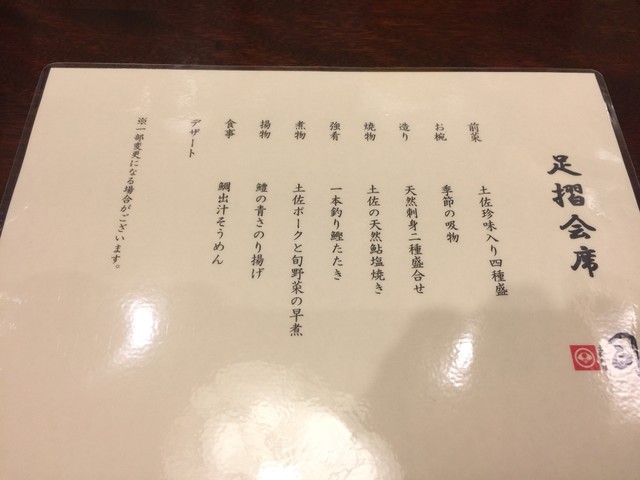 足摺会席
前菜 土佐珍味入り四種盛
お椀 季節の吸物
造り 天然刺身二種盛合せ
焼物 土佐の天然鮎塩焼き
強肴 一本釣り鰹たたき
煮物 土佐ポークと旬野菜の早煮
揚物 鱧の青さのり揚げ
食事 鯛出汁そうめん
デザート
※一部変更になる場合がございます。